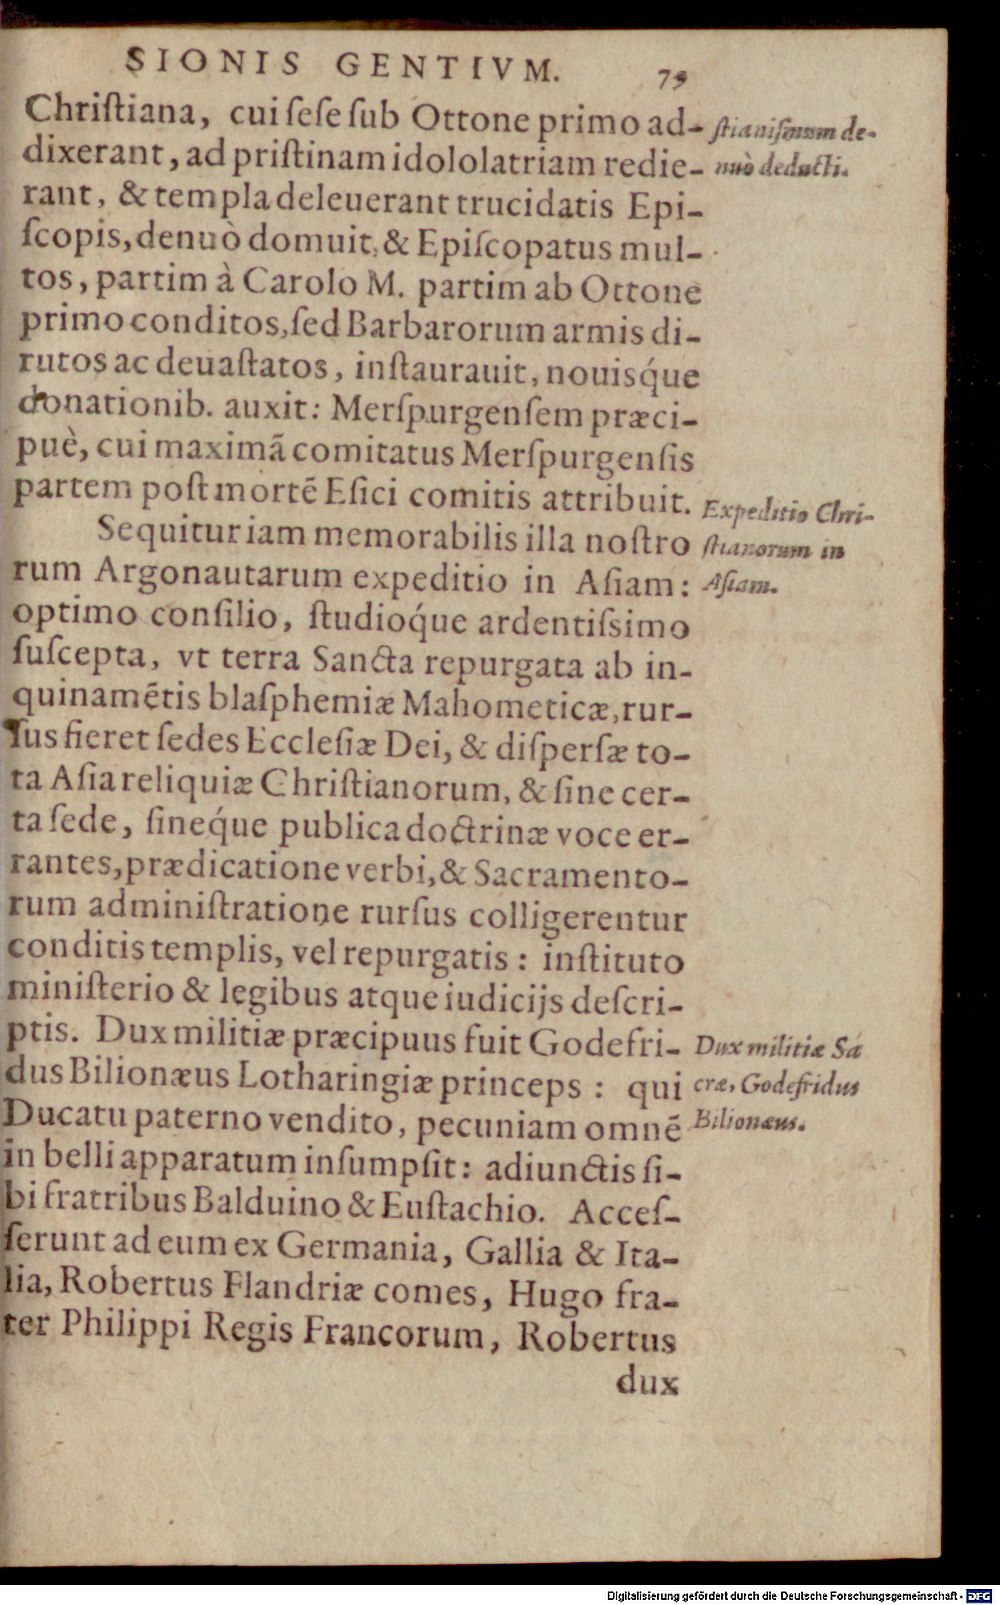 SIONIS GENTIVM. 79
Christiana, cui sese sub Ottone primo ad-
dixerant, ad pristinam idololatriam redie-
rant, & templa deleuerant trucidatis Epi-
scopis, denuò domuit, & Episcopatus mul-
tos, partim à Carolo M. partim ab Ottone
primo conditos, sed Barbarorum armis di-
rutos ac deuastatos, instaurauit, nouisq́ue
donationib. auxit: Merspurgensem præci-
puè, cui maximã comitatus Merspurgensis
partem post mortẽ Esici comitis attribuit.
Sequitur iam memorabilis illa nostro
rum Argonautarum expeditio in Asiam:
optimo consilio, studioq́ue ardentissimo
suscepta, vt terra Sancta repurgata ab in-
quinamẽtis blasphemiæ Mahometicæ, rur-
sus fieret sedes Ecclesiæ Dei, & dispersæ to-
ta Asia reliquiæ Christianorum, & sine cer-
ta sede, sineq́ue publica doctrinæ voce er-
rantes, prædicatione verbi, & Sacramento-
rum administratione rursus colligerentur
conditis templis, vel repurgatis: instituto
ministerio & legibus atque iudicijs descri-
ptis. Dux militiæ præcipuus fuit Godefri-
dus Bilionæus Lotharingiæ princeps: qui
Ducatu paterno vendito, pecuniam omnẽ
in belli apparatum insumpsit: adiunctis si-
bi fratribus Balduino & Eustachio. Acces-
serunt ad eum ex Germania, Gallia & Ita-
lia, Robertus Flandriæ comes, Hugo fra-
ter Philippi Regis Francorum, Robertus
dux
stianismum de-
nuò deducti.
Expeditio Chri-
stianorum in
Asiam.
Dux militiæ Sa
cræ, Godefridus
Bilionæus.
Digitalisierung gefördert durch die Deutsche Forschungsgemeinschaft - DFG